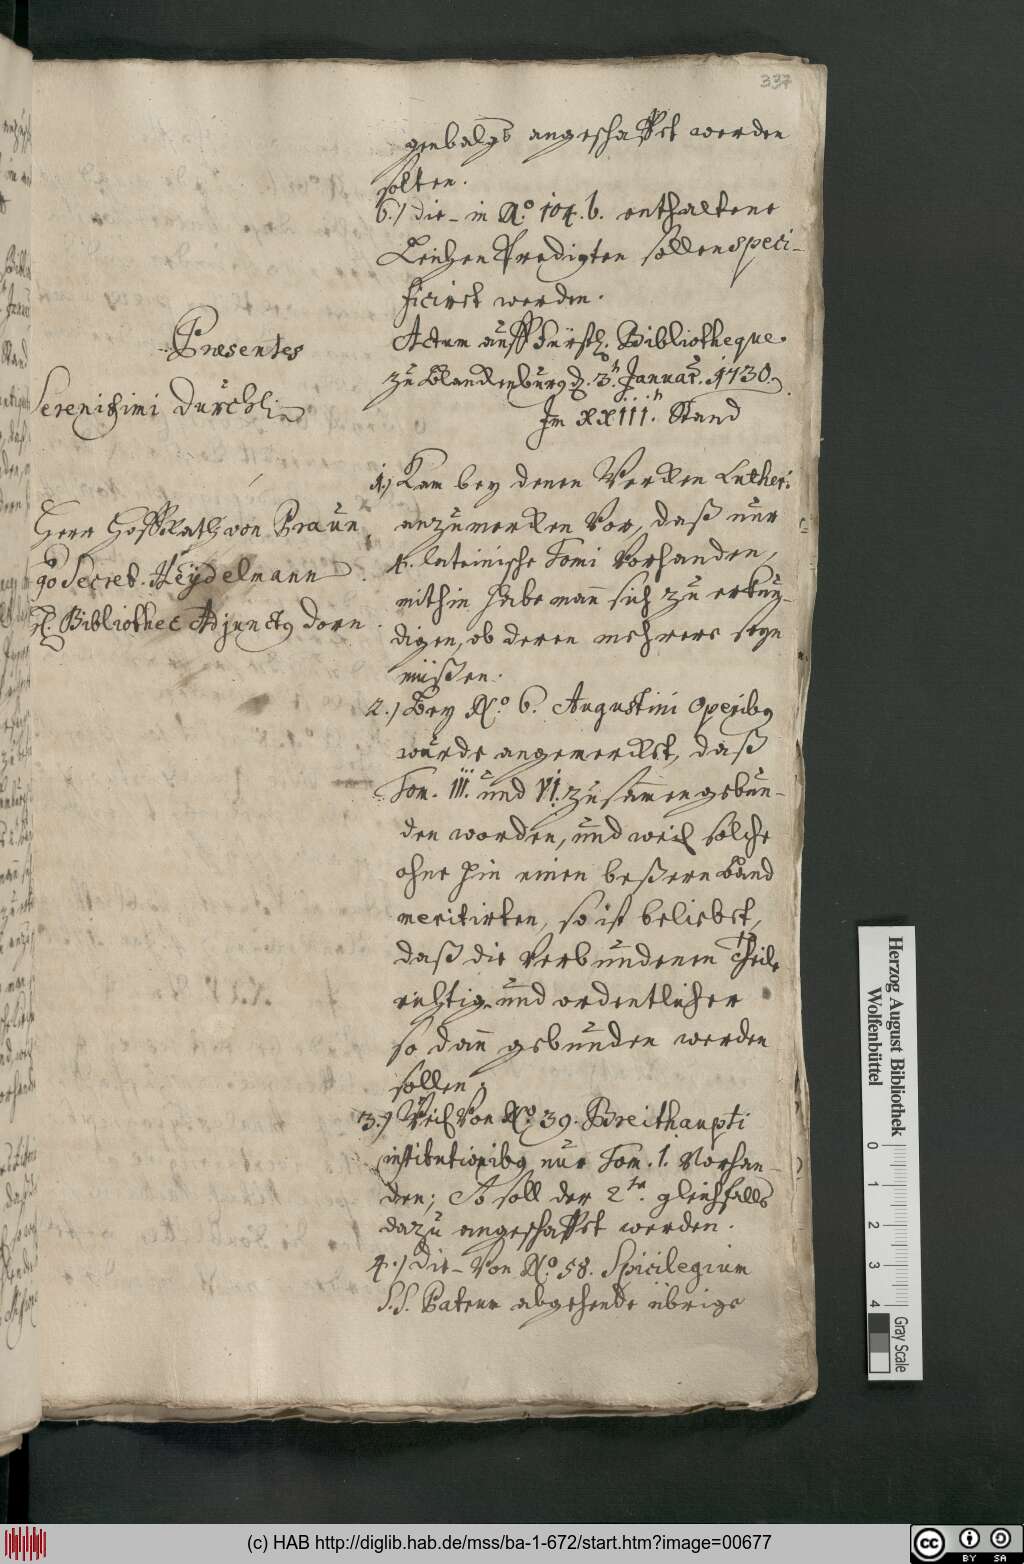 337
angeschafft werden
solten.
6.) die in No. 104. b. enthaltene
Leichen Predigten sollen speci-
ficiret werden.
Præsentes
Serenissimi Durchl.
Herr Hoff Rath von Praun,
Secret. Heydelmann
Bibliothec Adjunctus Dorn.
Actum auff Fürstl. Bibliotheque.
zu Blanckenburg d. 3t Januar. 1730.
Im XXIII.n Stand
1.) Kam bey denen Wercken Lutheri
anzumercken vor, daß nur
4. lateinische Tomi vorhanden,
mithin habe man sich zu erkun-
digen, ob deren mehrere seyn
müßen.
2.) Bey No. 6. Augustini operibus
wurde angemercket, daß
Tom. III. und VI. zusammengebun-
den worden, und weil solche
ohne hin einen beßern Band
meritirten, so ist beliebet,
daß die verbundenen Theile
richtig und ordentlicher
so dann gebunden werden
sollen.
3.) Weil von No. 39. Breithaupti
institutionibus nur Tom. 1. vorhan-
den; So soll der 2te. gleichfalls
dazu angeschaffet werden.
4.) Die von No. 58. Spicilegium
S.S. Patrum abgehende übrige
Herzog August Bibliothek
Wolfenbüttel
0 1 2 3 4
Gray Scale
(c) HAB http://diglib.hab.de/mss/ba-1-672/start.htm?image=00677
cc BY SA